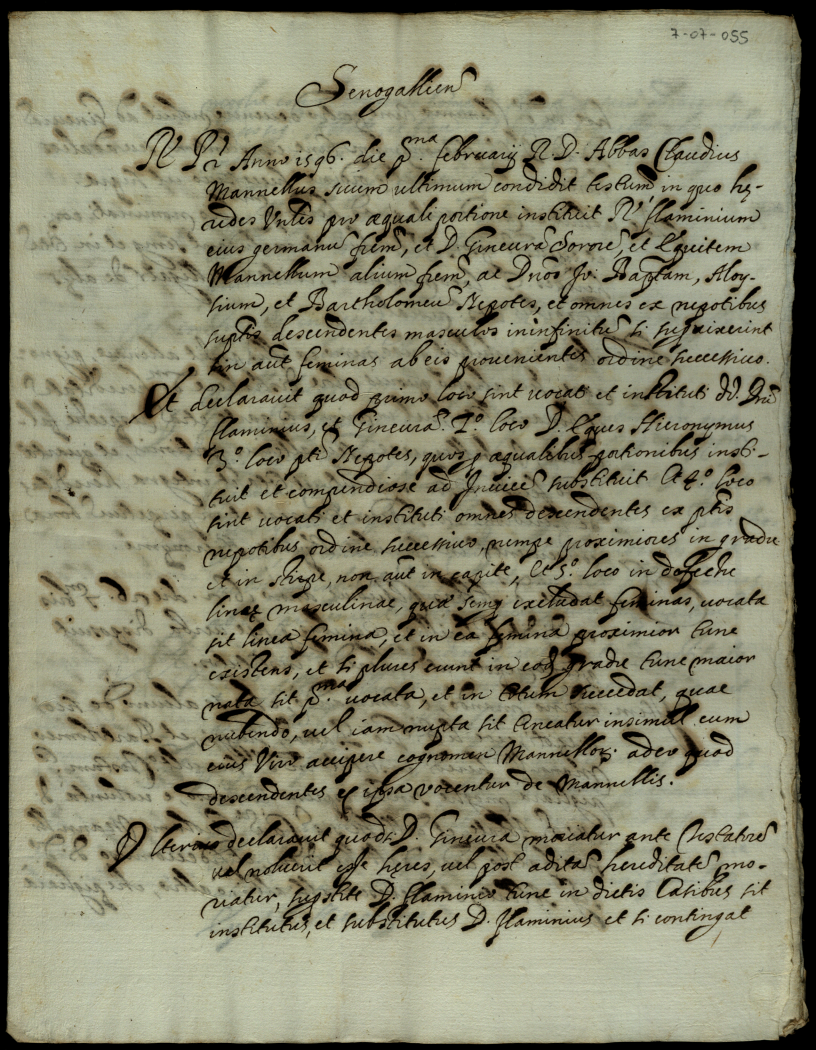 7-07-055
Senogallien̄
R. P. Anno 1596. die pma. februarij R. D. Abbas Claudius
Mannellus suum ultimum condidit testum̄ in quo hę-
redes Vnles pro æquali portione instituit Rm̄ flaminium
eius germanū frem̄, et D. Gineurā Sororē, et Equitem
Mannellum alium frem̄, ac Dnos Jo: Baptam, Aloy-
sium, et Bartholomeū Nepotes, et omnes ex nepotibus
suptis descendentes masculos in infinitū si supuixerint
sin aut̄ feminas ab eis prouenientes ordine successiuo.
Et declarauit quod primo loco sint uocati et instituti DD.
flaminius, et Gineura. 2.o loco D. Eques Hieronymus
3.o loco pti Nepotes, quos p æqualibus portionibus insti-
tuit et compendiose ad Inuicē substituit Et 4.o loco
sint uocati et instituti omnes descendentes ex ptis
nepotibus ordine successiuo, nempe proximiores in gradu
et in stirpe, non aut̄ in capite, Et 5.o loco in defectū
lineę masculinae, quæ semp excludat feminas, uocata
sit linea femina, et in ea femina proximior tunc
existens, et si plures erunt in eod gradu tunc maior
nata sit pma. uocata, et in totum succedat, quae
nubendo, uel iam nupta sit teneatur insimul cum
eius Viro accipere cognomen Mannellor. adeo quod
descendentes ex ipsa vocentur de Mannellis.
Vlterius declarauit quod si D. Gineura moriatur ante Testatorē
uel noluerit esse hęres, uel post aditā hereditatē mo-
riatur, supstite D. flaminio tunc in dictis Casibus sit
institutus, et substitutus D. flaminius et si contingat